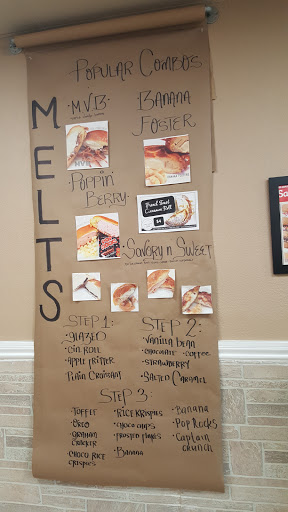 POPULAR COMBOS
MELTS
·MVB·
BANANA
FOSTER
POPPIN
BERRY·
Bread Bowl
Cinnamon Roll
$4
·SAVORY N SWEET
STEP 1:
·GLAZED
·CIN ROLL
·APPLE FRITTER
·PLAIN CROISSANT
STEP 2:
·VANILLA BEAN
·CHOCOLATE ·COFFEE
·STRAWBERRY
·SALTED CARAMEL
STEP 3:
·TOFFEE
·OREO
·GRAHAM
CRACKER
·CHOCO RICE
CRISPIES
·RICE KRISPIES
·CHOCO CHIPS
·FROSTED FLAKES
·BANANA
·BANANA
·POP ROCKS
·CAPTAIN
CRUNCH